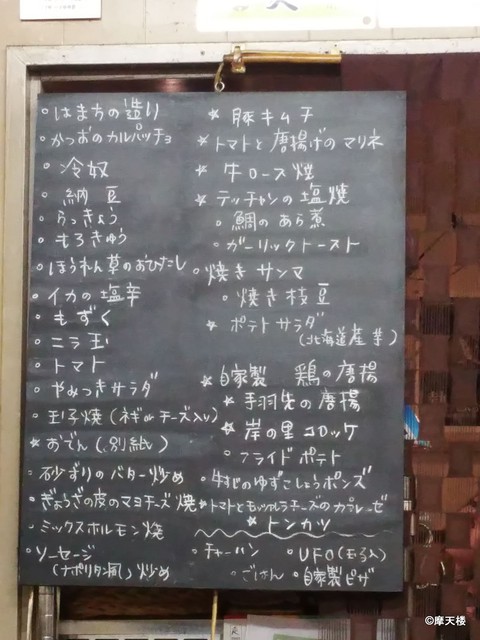 ・はまちの造り
・かつおのカルパッチョ
・冷奴
・納豆
・らっきょう
・もろきゅう
・ほうれん草のおひたし
・イカの塩辛
・もずく
・ニラ玉
・トマト
・やみつきサラダ
・玉子焼(ネギorチーズ入り)
★おでん(別紙)
・砂ずりのバター炒め
・ぎょうざの皮のマヨチーズ焼
・ミックスホルモン焼
・ソーセージ
(ナポリタン風)炒め
★豚キムチ
★トマトと唐揚げのマリネ
★牛ロース焼
★テッチャンの塩焼
・鯛のあら煮
・ガーリックトースト
・焼きサンマ
・焼き枝豆
★ポテトサラダ
(北海道産芋)
★自家製 鶏の唐揚
★手羽先の唐揚
★岸の里コロッケ
・フライドポテト
・牛すじのゆずこしょうポンズ
★トマトとモッツァレラチーズのカプレーゼ
★トンカツ
・チャーハン ・UFO(モヤシ入)
・ごはん ・自家製ピザ
©摩天楼